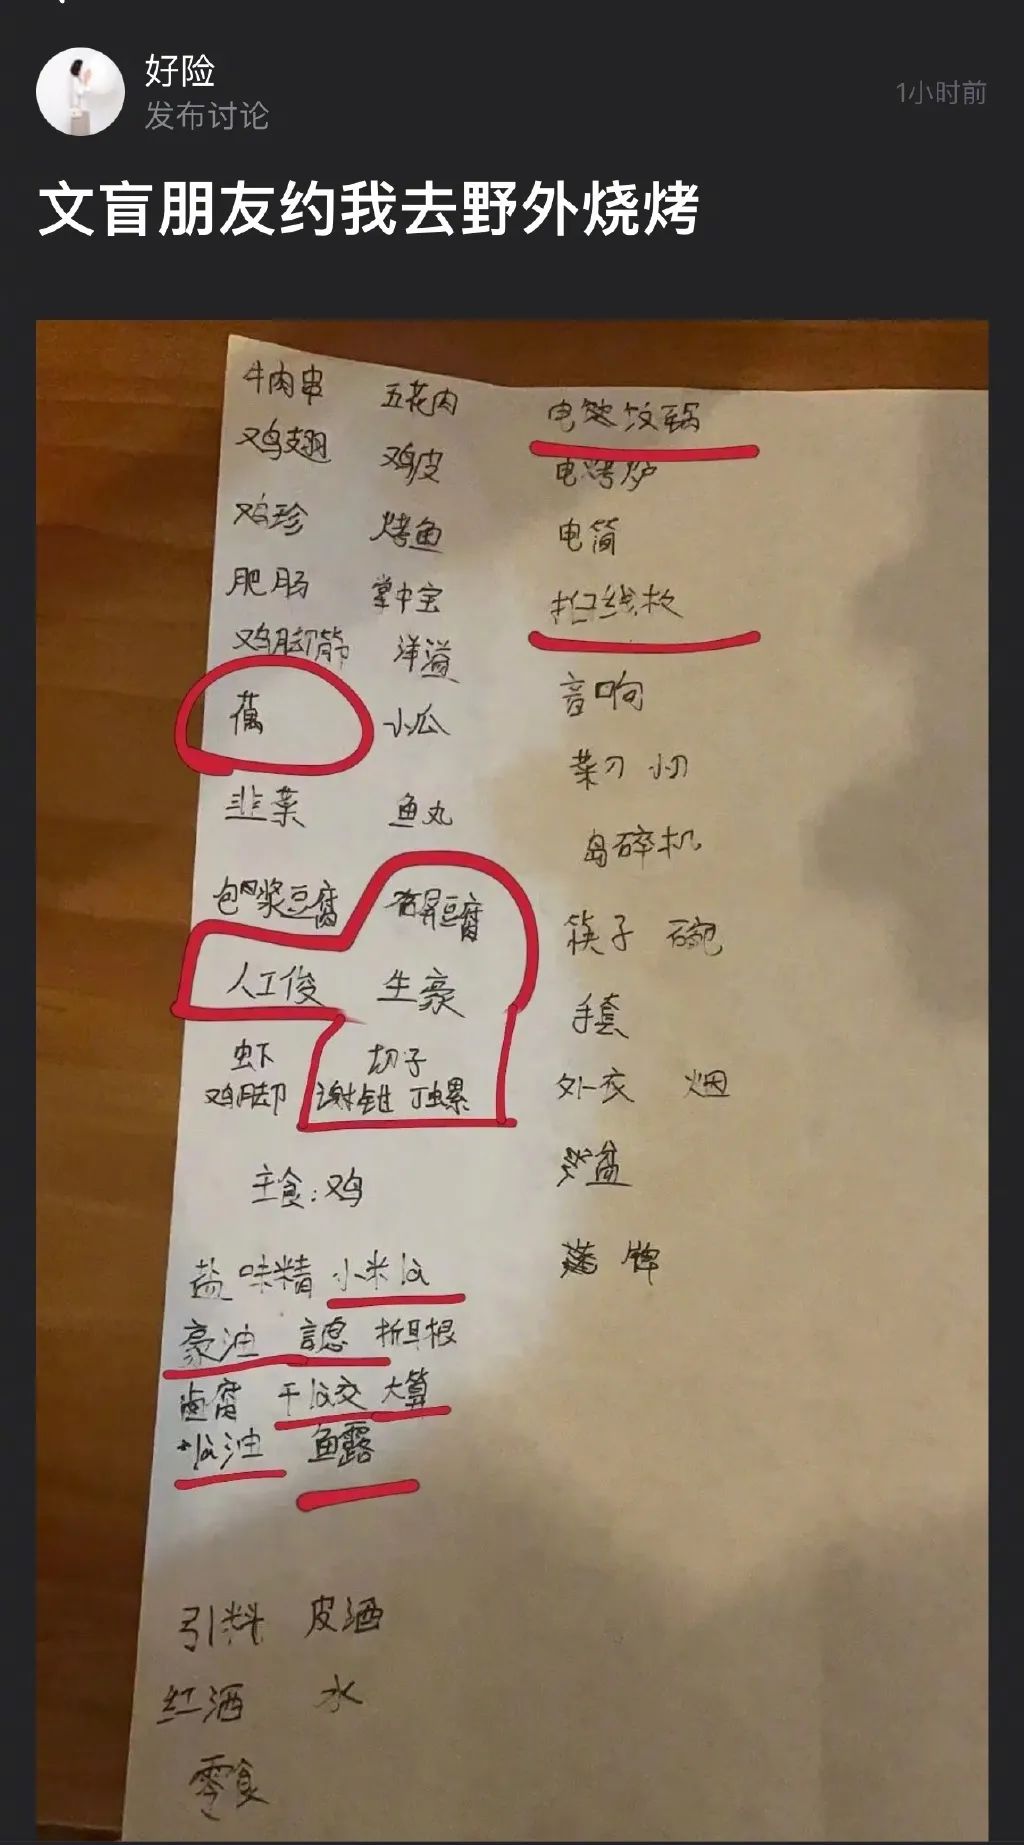 好险
发布讨论
1小时前
文盲朋友约我去野外烧烤
牛肉串 五花肉
鸡翅 鸡皮
鸡珍 烤鱼
肥肠 掌中宝
鸡脚筋 洋溢
小瓜
韭菜 鱼丸
包浆豆腐 豆腐
人工俊 生豪
虾 切子
鸡脚 谢钳 丁螺
主食：鸡
盐 味精 小米
豪油 折耳根
卤腐 干 大算
油 鱼露
引料 皮酒
红酒 水
零食
电 饭锅
电烤炉
电筒
线板
音响
菜刀 小刀
岛碎机
筷子 碗
手套
外衣 烟
盆
牌